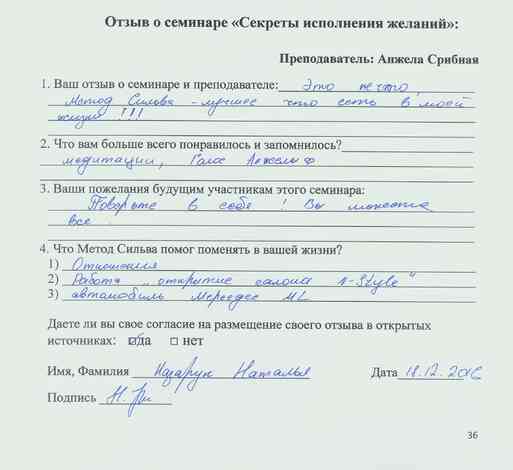 Отзыв о семинаре «Секреты исполнения желаний»:
Преподаватель: Анжела Срибная
1. Ваш отзыв о семинаре и преподавателе: Это нечто,
Метод Сильва - лучшее что есть в моей
жизни !!!
2. Что вам больше всего понравилось и запомнилось?
медитации, Голос Анжелы
3. Ваши пожелания будущим участникам этого семинара:
Поверьте в себя! Вы можете
все
4. Что Метод Сильва помог поменять в вашей жизни?
1) Отношения
2) Работа, открытие салона "N-Style"
3) автомобиль Мерседес ML
Даете ли вы свое согласие на размещение своего отзыва в открытых
источниках: да нет
Имя, Фамилия Назарук Наталья Дата 18.12.2016
Подпись
36